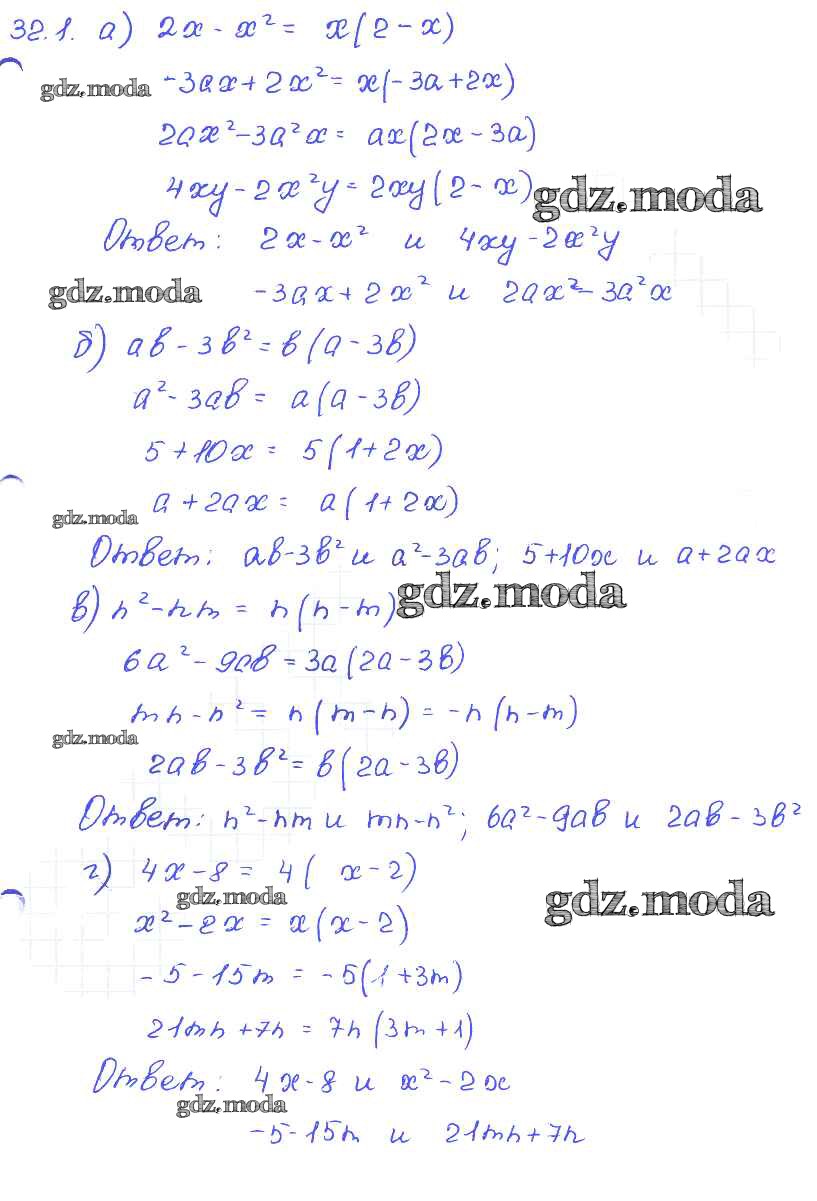 32.1. а) 2x - x² = x(2 - x)
gdz.moda -3ax + 2x² = x(-3a + 2x)
2ax² - 3a²x = ax(2x - 3a)
4xy - 2x²y = 2xy(2 - x) gdz.moda
Ответ: 2x - x² и 4xy - 2x²y
gdz.moda -3ax + 2x² и 2ax² - 3a²x
б) ab - 3b² = b(a - 3b)
a² - 3ab = a(a - 3b)
5 + 10x = 5(1 + 2x)
a + 2ax = a(1 + 2x)
gdz.moda
Ответ: ab - 3b² и a² - 3ab; 5 + 10x и a + 2ax
в) n² - nm = n(n - m) gdz.moda
6a² - 9ab = 3a(2a - 3b)
mn - n² = n(m - n) = -n(n - m)
gdz.moda
2ab - 3b² = b(2a - 3b)
Ответ: n² - nm и mn - n²; 6a² - 9ab и 2ab - 3b²
г) 4x - 8 = 4( x - 2)
gdz.moda gdz.moda
x² - 2x = x(x - 2)
-5 - 15m = -5(1 + 3m)
21mn + 7n = 7n(3m + 1)
Ответ: 4x - 8 и x² - 2x
gdz.moda
-5 - 15m и 21mn + 7n